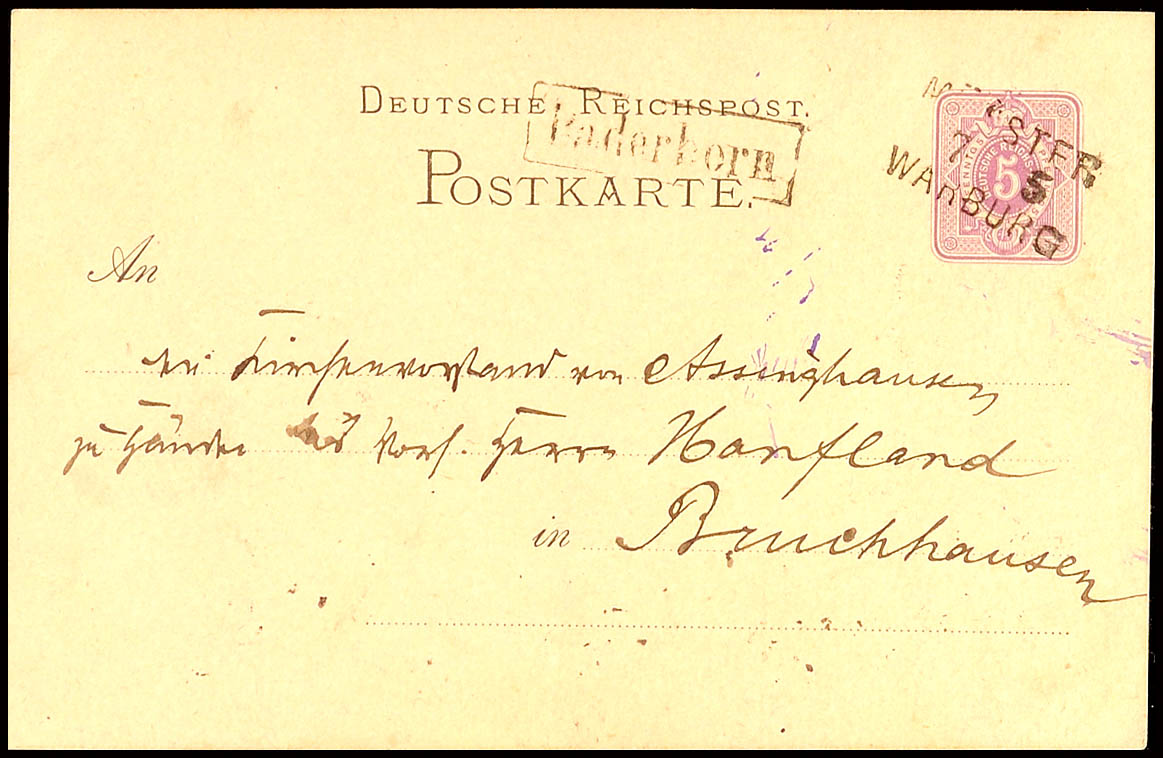 DEUTSCHE REICHSPOST.
Paderborn
POSTKARTE.
STER
7 5
WARBURG
PFENNIG
DEUTSCHE REICHS
5
An
Kirchenvorstand von Assinghausen
zu Händen des Vors. Herrn Hanfland
in Bruchhausen